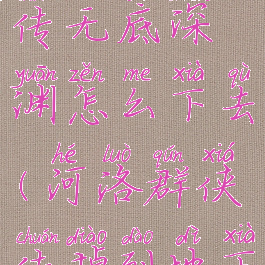 传无底深
yuān zěn me xià qù
渊怎么下去
hé luò qún xiá
(河洛群侠
chuán diào dào dì xià
传掉到地下